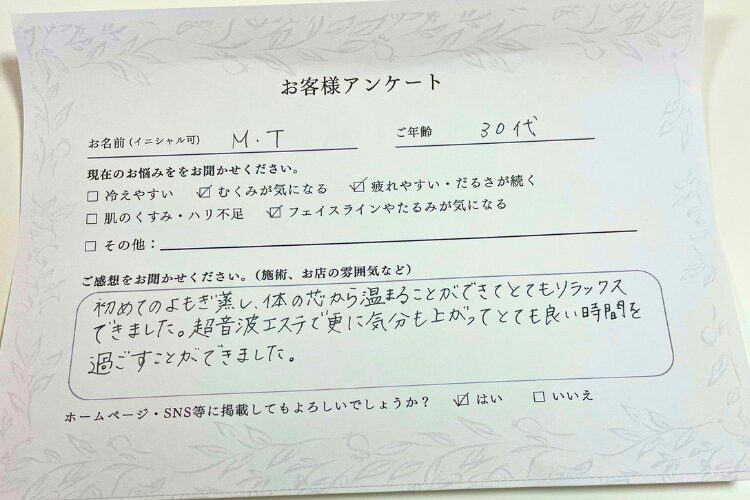 お客様アンケート
お名前(イニシャル可) M.T ご年齢 30代
現在のお悩みををお聞かせください。
□ 冷えやすい ☑ むくみが気になる ☑ 疲れやすい・だるさが続く
□ 肌のくすみ・ハリ不足 ☑ フェイスラインやたるみが気になる
□ その他：
ご感想をお聞かせください。（施術、お店の雰囲気など）
初めてのよもぎ蒸し、体の芯から温まることができてとてもリラックス
できました。超音波エステで更に気分も上がってとても良い時間を
過ごすことができました。
ホームページ・SNS等に掲載してもよろしいでしょうか？ ☑ はい □ いいえ